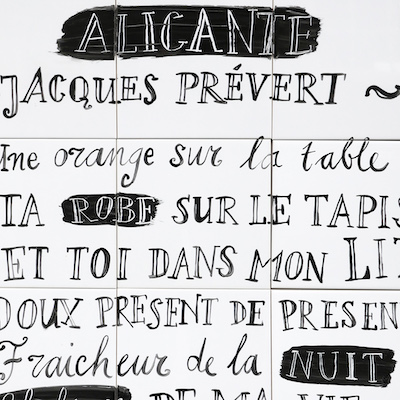 ALICANTE
JACQUES PRÉVERT ~
Une orange sur la table
TA ROBE SUR LE TAPIS
ET TOI DANS MON LIT
DOUX PRESENT DE PRESEN
Fraicheur de la NUIT
DE MA VIE